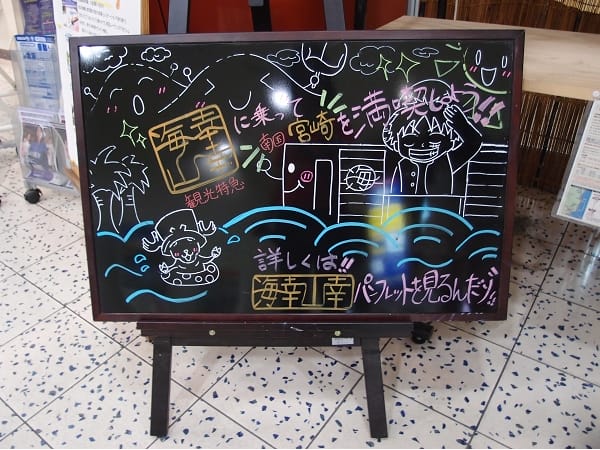 海幸山幸
に乗って
南国
宮崎を満喫しよう!!
観光特急
詳しくは!!
海幸山幸
パンフレットを見るんだゾ!!